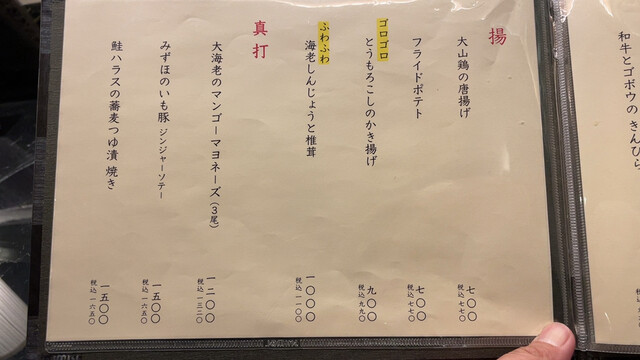 和牛とゴボウのきんぴら
揚
大山鶏の唐揚げ
七〇〇
税込 七七〇
フライドポテト
七〇〇
税込 七七〇
ゴロゴロ
とうもろこしのかき揚げ
九〇〇
税込 九九〇
ふわふわ
海老しんじょうと椎茸
一〇〇〇
税込 一一〇〇
真打
大海老のマンゴーマヨネーズ(3尾)
一二〇〇
税込 一三二〇
みずほのいも豚 ジンジャーソテー
一五〇〇
税込 一六五〇
鮭ハラスの蕎麦つゆ漬焼き
一五〇〇
税込 一六五〇